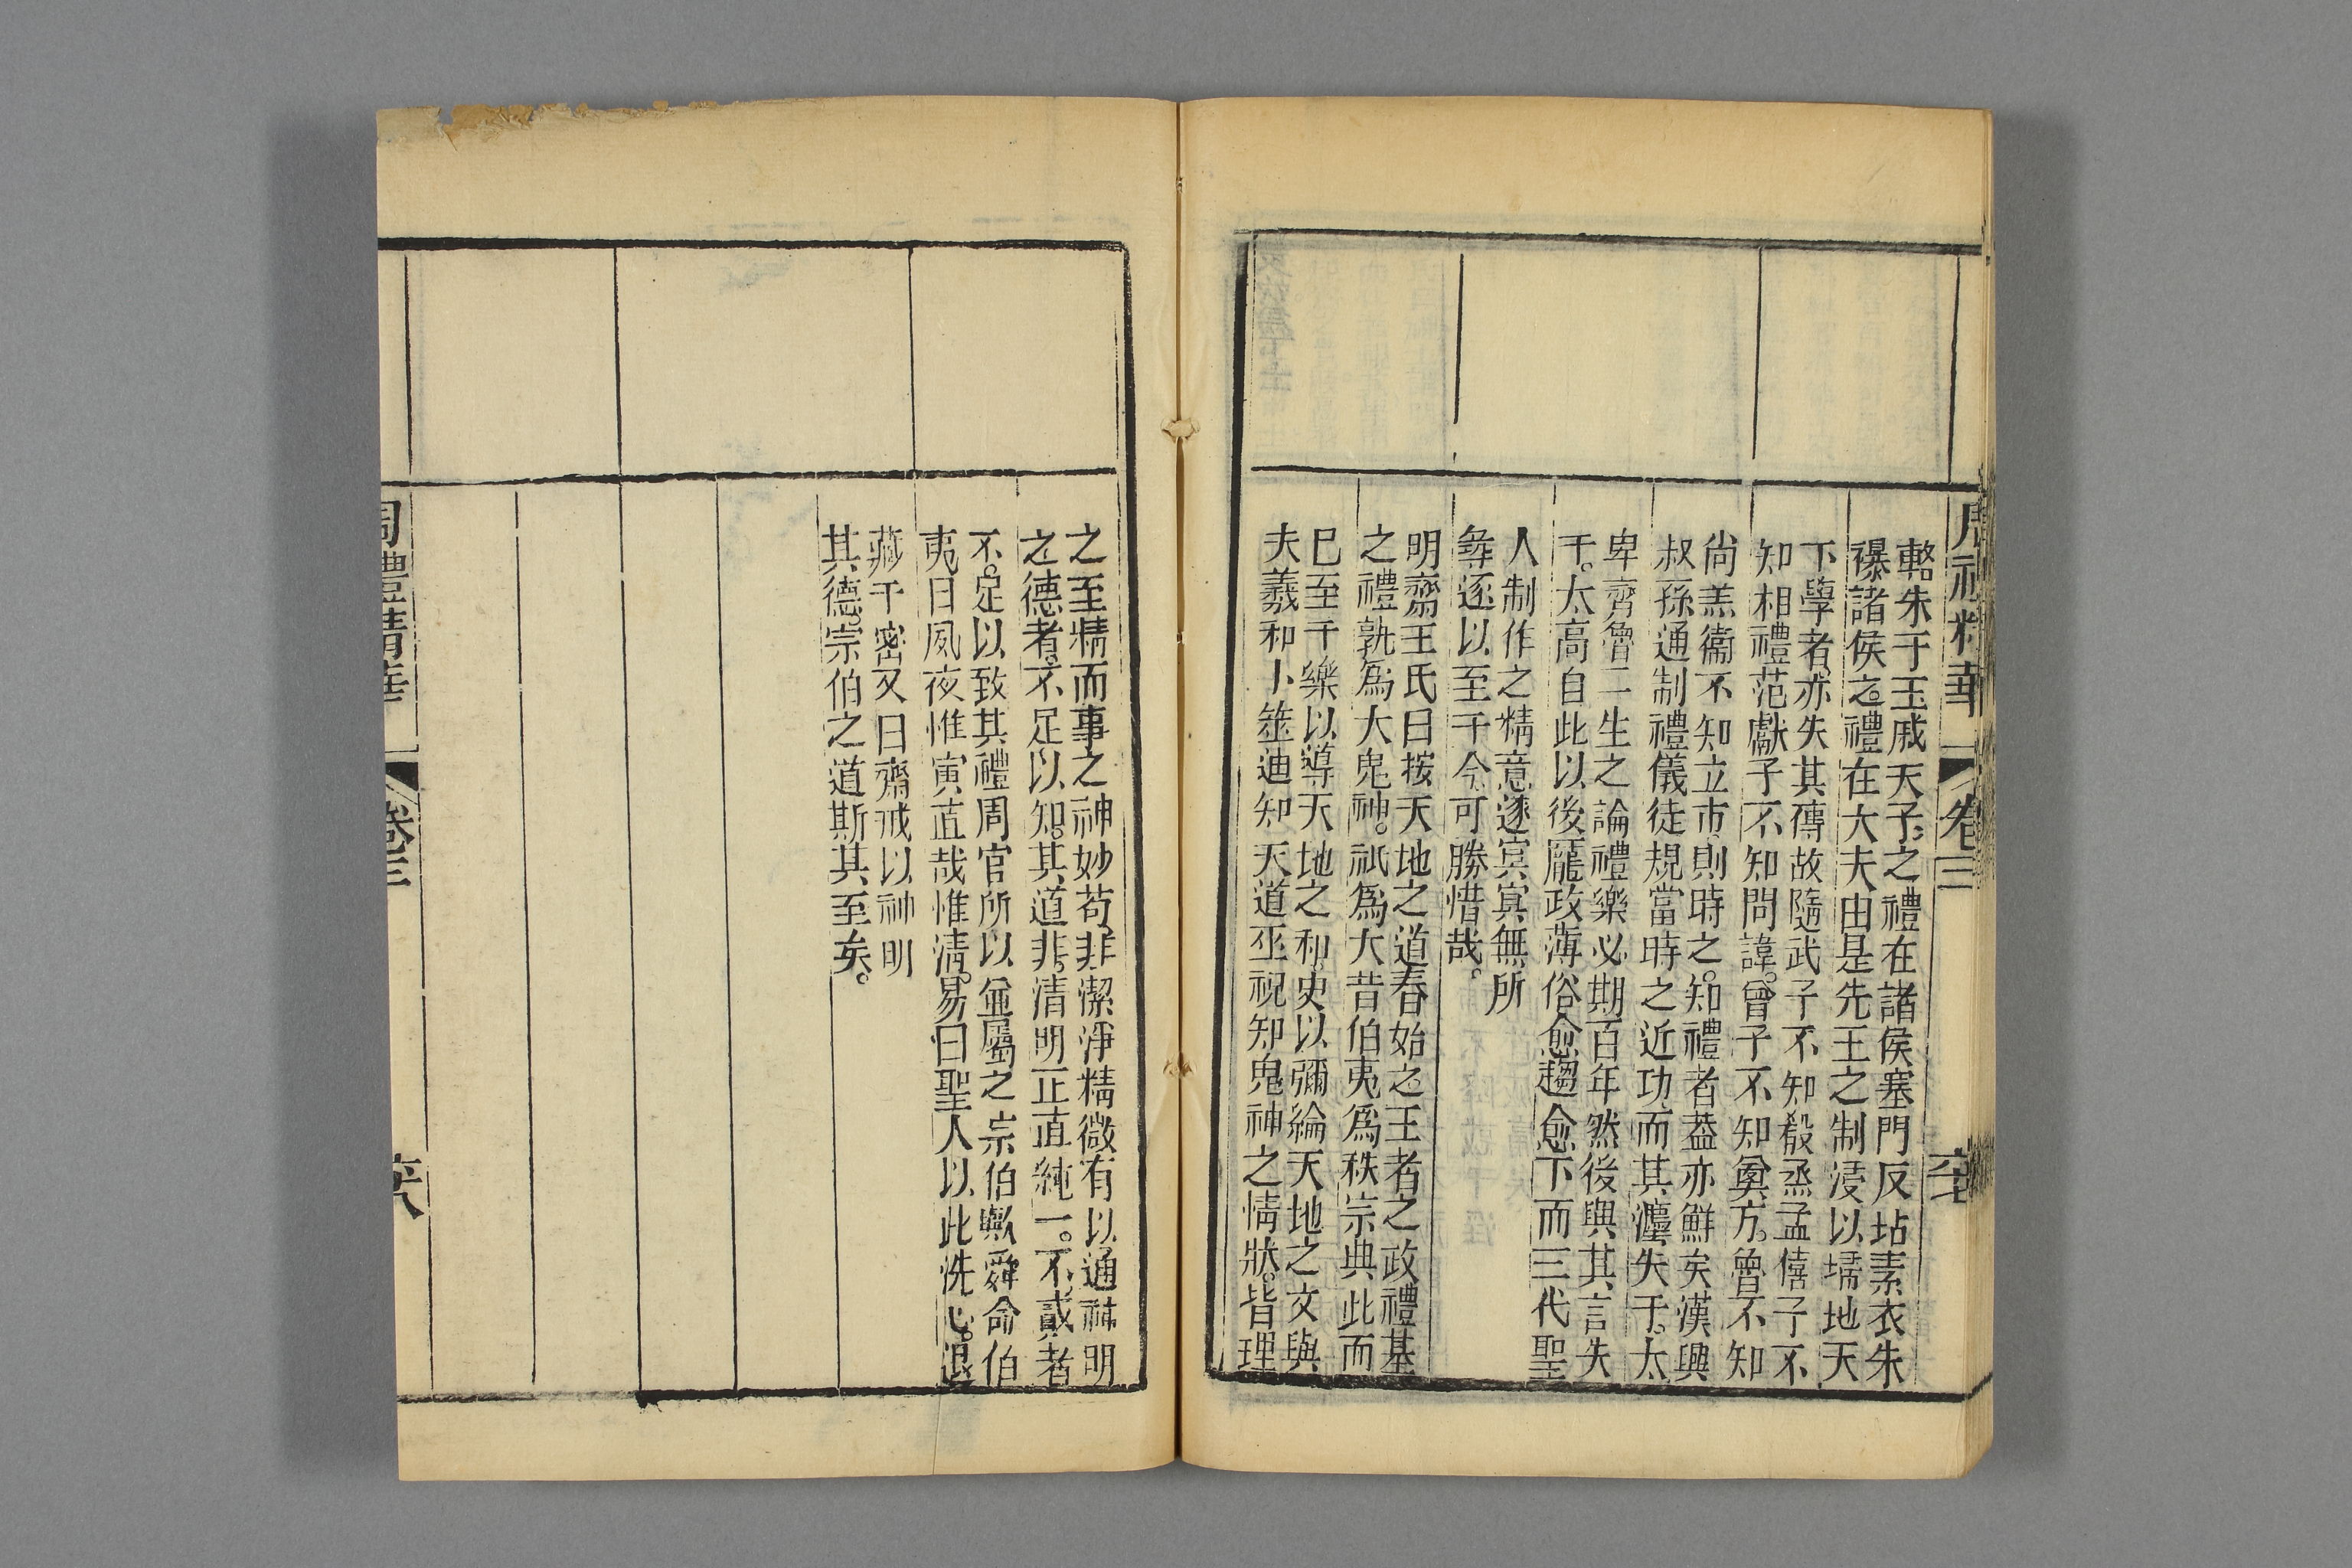 周禮精華
卷三
輅朱干玉戚天子之禮在諸侯塞門反坫素衣朱
襮諸侯之禮在大夫由是先王之制浸以壖地天
下學者亦失其傳故隨武子不知殽烝孟僖子不
知相禮范獻子不知問諱曾子不知奠方曾不知
尚羔衞不知立市則時之知禮者蓋亦鮮矣漢興
叔孫通制禮儀徒規當時之近功而其灋失于太
卑齊魯二生之論禮樂必期百年然後與其言失
于太高自此以後厖政薄俗愈趨愈下而三代聖
人制作之精意遂㝠㝠無所
彝逐以至于今可勝惜哉
明齋王氏曰按天地之道春始之王者之政禮基
之禮孰爲大鬼神祇爲大昔伯夷爲秩宗典此而
巳至于樂以導天地之和史以彌綸天地之文與
夫羲和卜筮廸知天道巫祝知鬼神之情狀皆理
之至精而事之神妙苟非潔淨精微有以通神明
之德者不足以知其道非清明正直純一不貳者
不足以致其禮周官所以並屬之宗伯歟舜命伯
夷曰夙夜惟寅直哉惟清易曰聖人以此洗心退
藏于密又曰齋戒以神明
其德宗伯之道斯其至矣
周禮精華
卷三